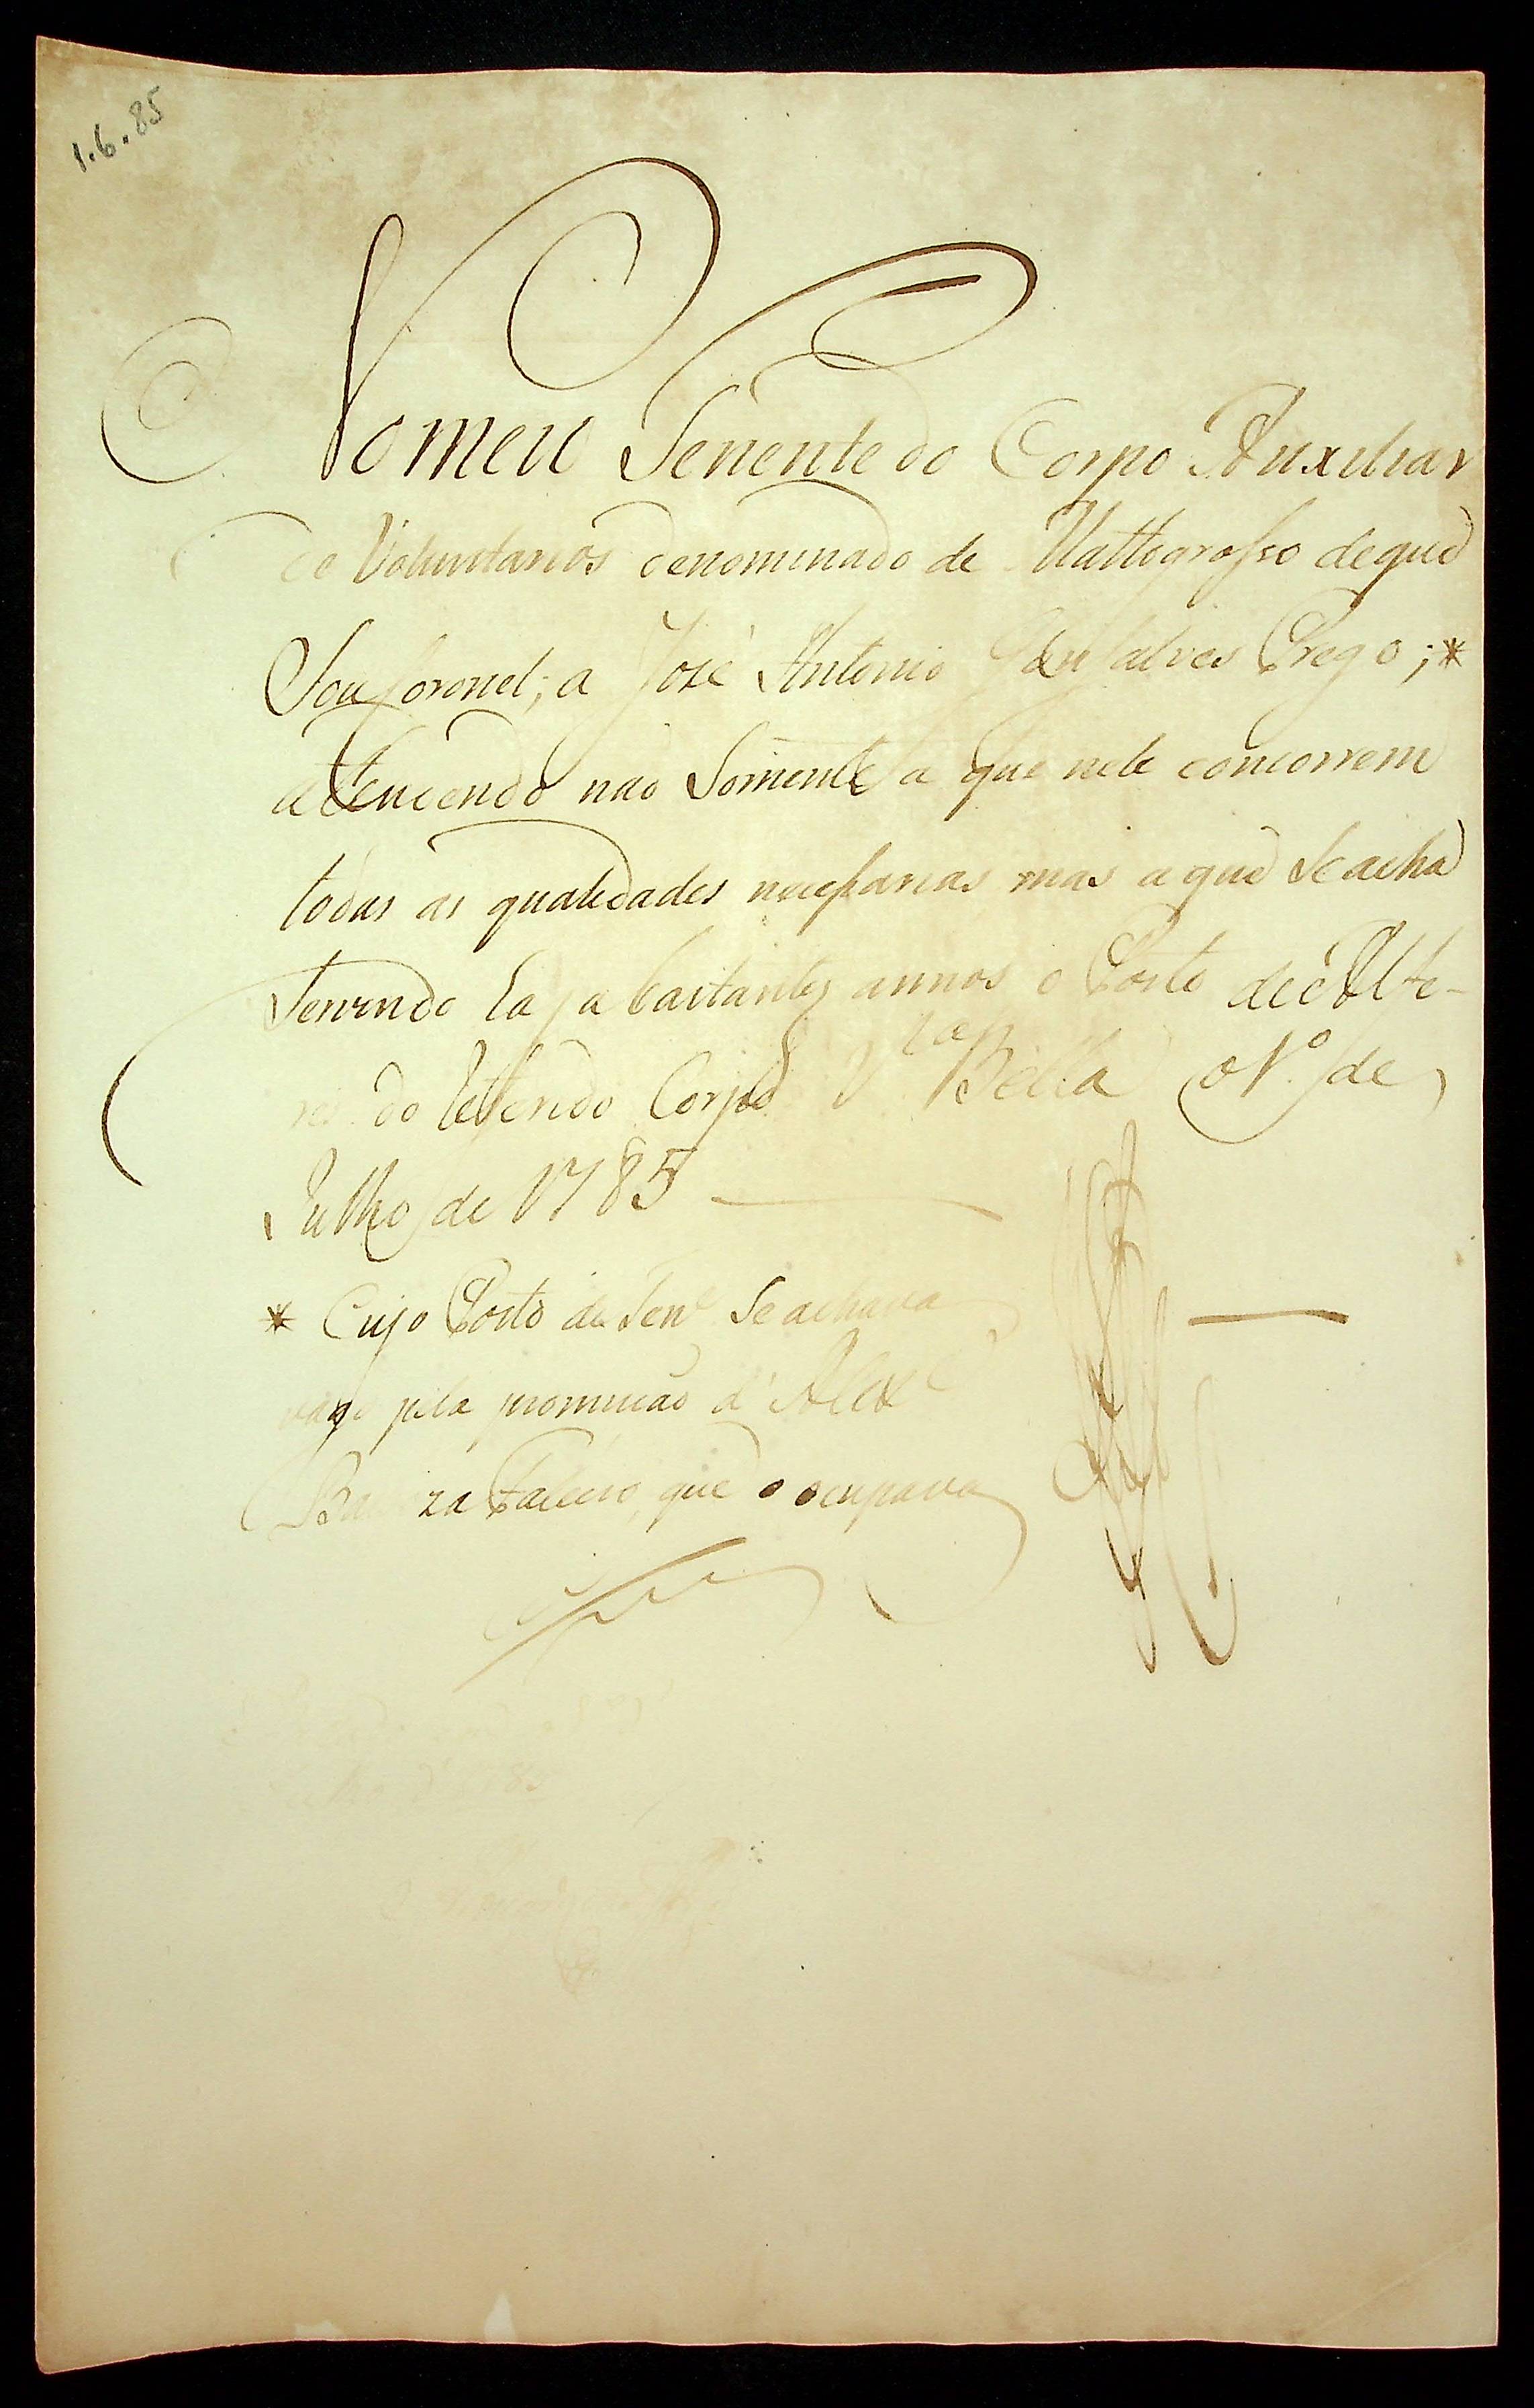 1.6.85
Nomeu Tenente do Corpo Auxiliar
de Voluntarios denominado de Mattogrosso de que
Sou Coronel; a José Antonio Gonsalves Prego; *
attendendo não Somente a que nele concorrem
todas as qualidades necessarias mas a que Se acha
Servindo la ja bastantes annos o Posto de Alfe-
res do referido Corpo V.ª Bella o 1.º de
Julho de 1785
* Cujo Posto de Ten.e Se achava
vago pela promoção d' Alex.e
que o ocupava